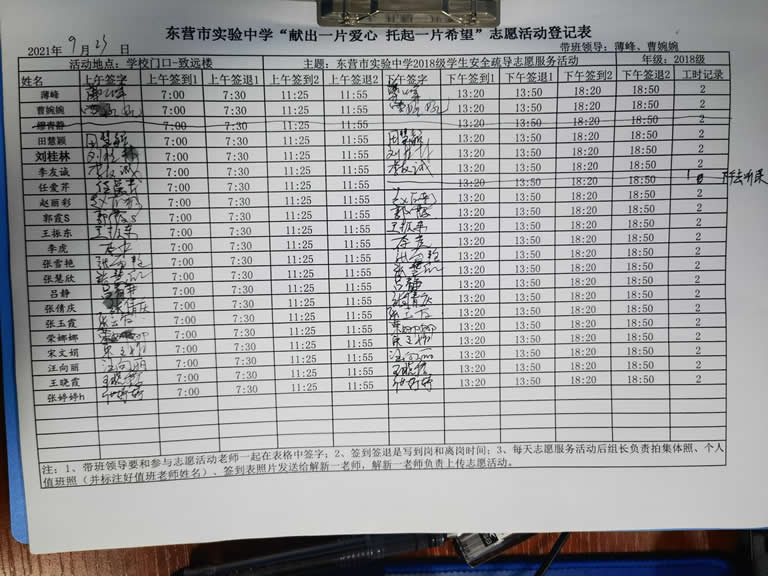 东营市实验中学“献出一片爱心 托起一片希望”志愿活动登记表
2021年 9月 23 日 带班领导：薄峰、曹婉婉
活动地点：学校门口-致远楼 主题：东营市实验中学2018级学生安全疏导志愿服务活动 年级：2018级
姓名 上午签字 上午签到1 上午签退1 上午签到2 上午签退2 下午签字 下午签到1 下午签退1 下午签到2 下午签退2 工时记录
薄峰 薄峰 7:00 7:30 11:25 11:55 薄峰 13:20 13:50 18:20 18:50 2
曹婉婉 曹婉婉 7:00 7:30 11:25 11:55 曹婉婉 13:20 13:50 18:20 18:50 2
缪青静 7:00 7:30 11:25 11:55 13:20 13:50 18:20 18:50 2
田慧颖 田慧颖 7:00 7:30 11:25 11:55 田慧颖 13:20 13:50 18:20 18:50 2
刘桂林 刘桂林 7:00 7:30 11:25 11:55 刘桂林 13:20 13:50 18:20 18:50 2
李友诚 李友诚 7:00 7:30 11:25 11:55 李友诚 13:20 13:50 18:20 18:50 2
任爱芹 任爱芹 7:00 7:30 11:25 11:55 13:20 13:50 18:20 18:50 1
赵丽彩 赵丽彩 7:00 7:30 11:25 11:55 赵丽彩 13:20 13:50 18:20 18:50 2
郭霞S 郭霞S 7:00 7:30 11:25 11:55 郭霞 13:20 13:50 18:20 18:50 2
王振东 王振东 7:00 7:30 11:25 11:55 王振东 13:20 13:50 18:20 18:50 2
李虎 李虎 7:00 7:30 11:25 11:55 李虎 13:20 13:50 18:20 18:50 2
张雪艳 张雪艳 7:00 7:30 11:25 11:55 张雪艳 13:20 13:50 18:20 18:50 2
张慧欣 张慧欣 7:00 7:30 11:25 11:55 张慧欣 13:20 13:50 18:20 18:50 2
吕静 吕静 7:00 7:30 11:25 11:55 吕静 13:20 13:50 18:20 18:50 2
张倩庆 张倩庆 7:00 7:30 11:25 11:55 张倩庆 13:20 13:50 18:20 18:50 2
张玉霞 张玉霞 7:00 7:30 11:25 11:55 张玉霞 13:20 13:50 18:20 18:50 2
荣娜娜 荣娜娜 7:00 7:30 11:25 11:55 荣娜娜 13:20 13:50 18:20 18:50 2
宋文娟 宋文娟 7:00 7:30 11:25 11:55 宋文娟 13:20 13:50 18:20 18:50 2
汪向丽 汪向丽 7:00 7:30 11:25 11:55 汪向丽 13:20 13:50 18:20 18:50 2
王晓霞 王晓霞 7:00 7:30 11:25 11:55 王晓霞 13:20 13:50 18:20 18:50 2
张婷婷h 张婷婷 7:00 7:30 11:25 11:55 张婷婷 13:20 13:50 18:20 18:50 2
注：1、带班领导要和参与志愿活动老师一起在表格中签字；2、签到签退是写到岗和离岗时间；3、每天志愿服务活动后组长负责拍集体照、个人
值班照（并标注好值班老师姓名）、签到表照片发送给解新一老师，解新一老师负责上传志愿活动。